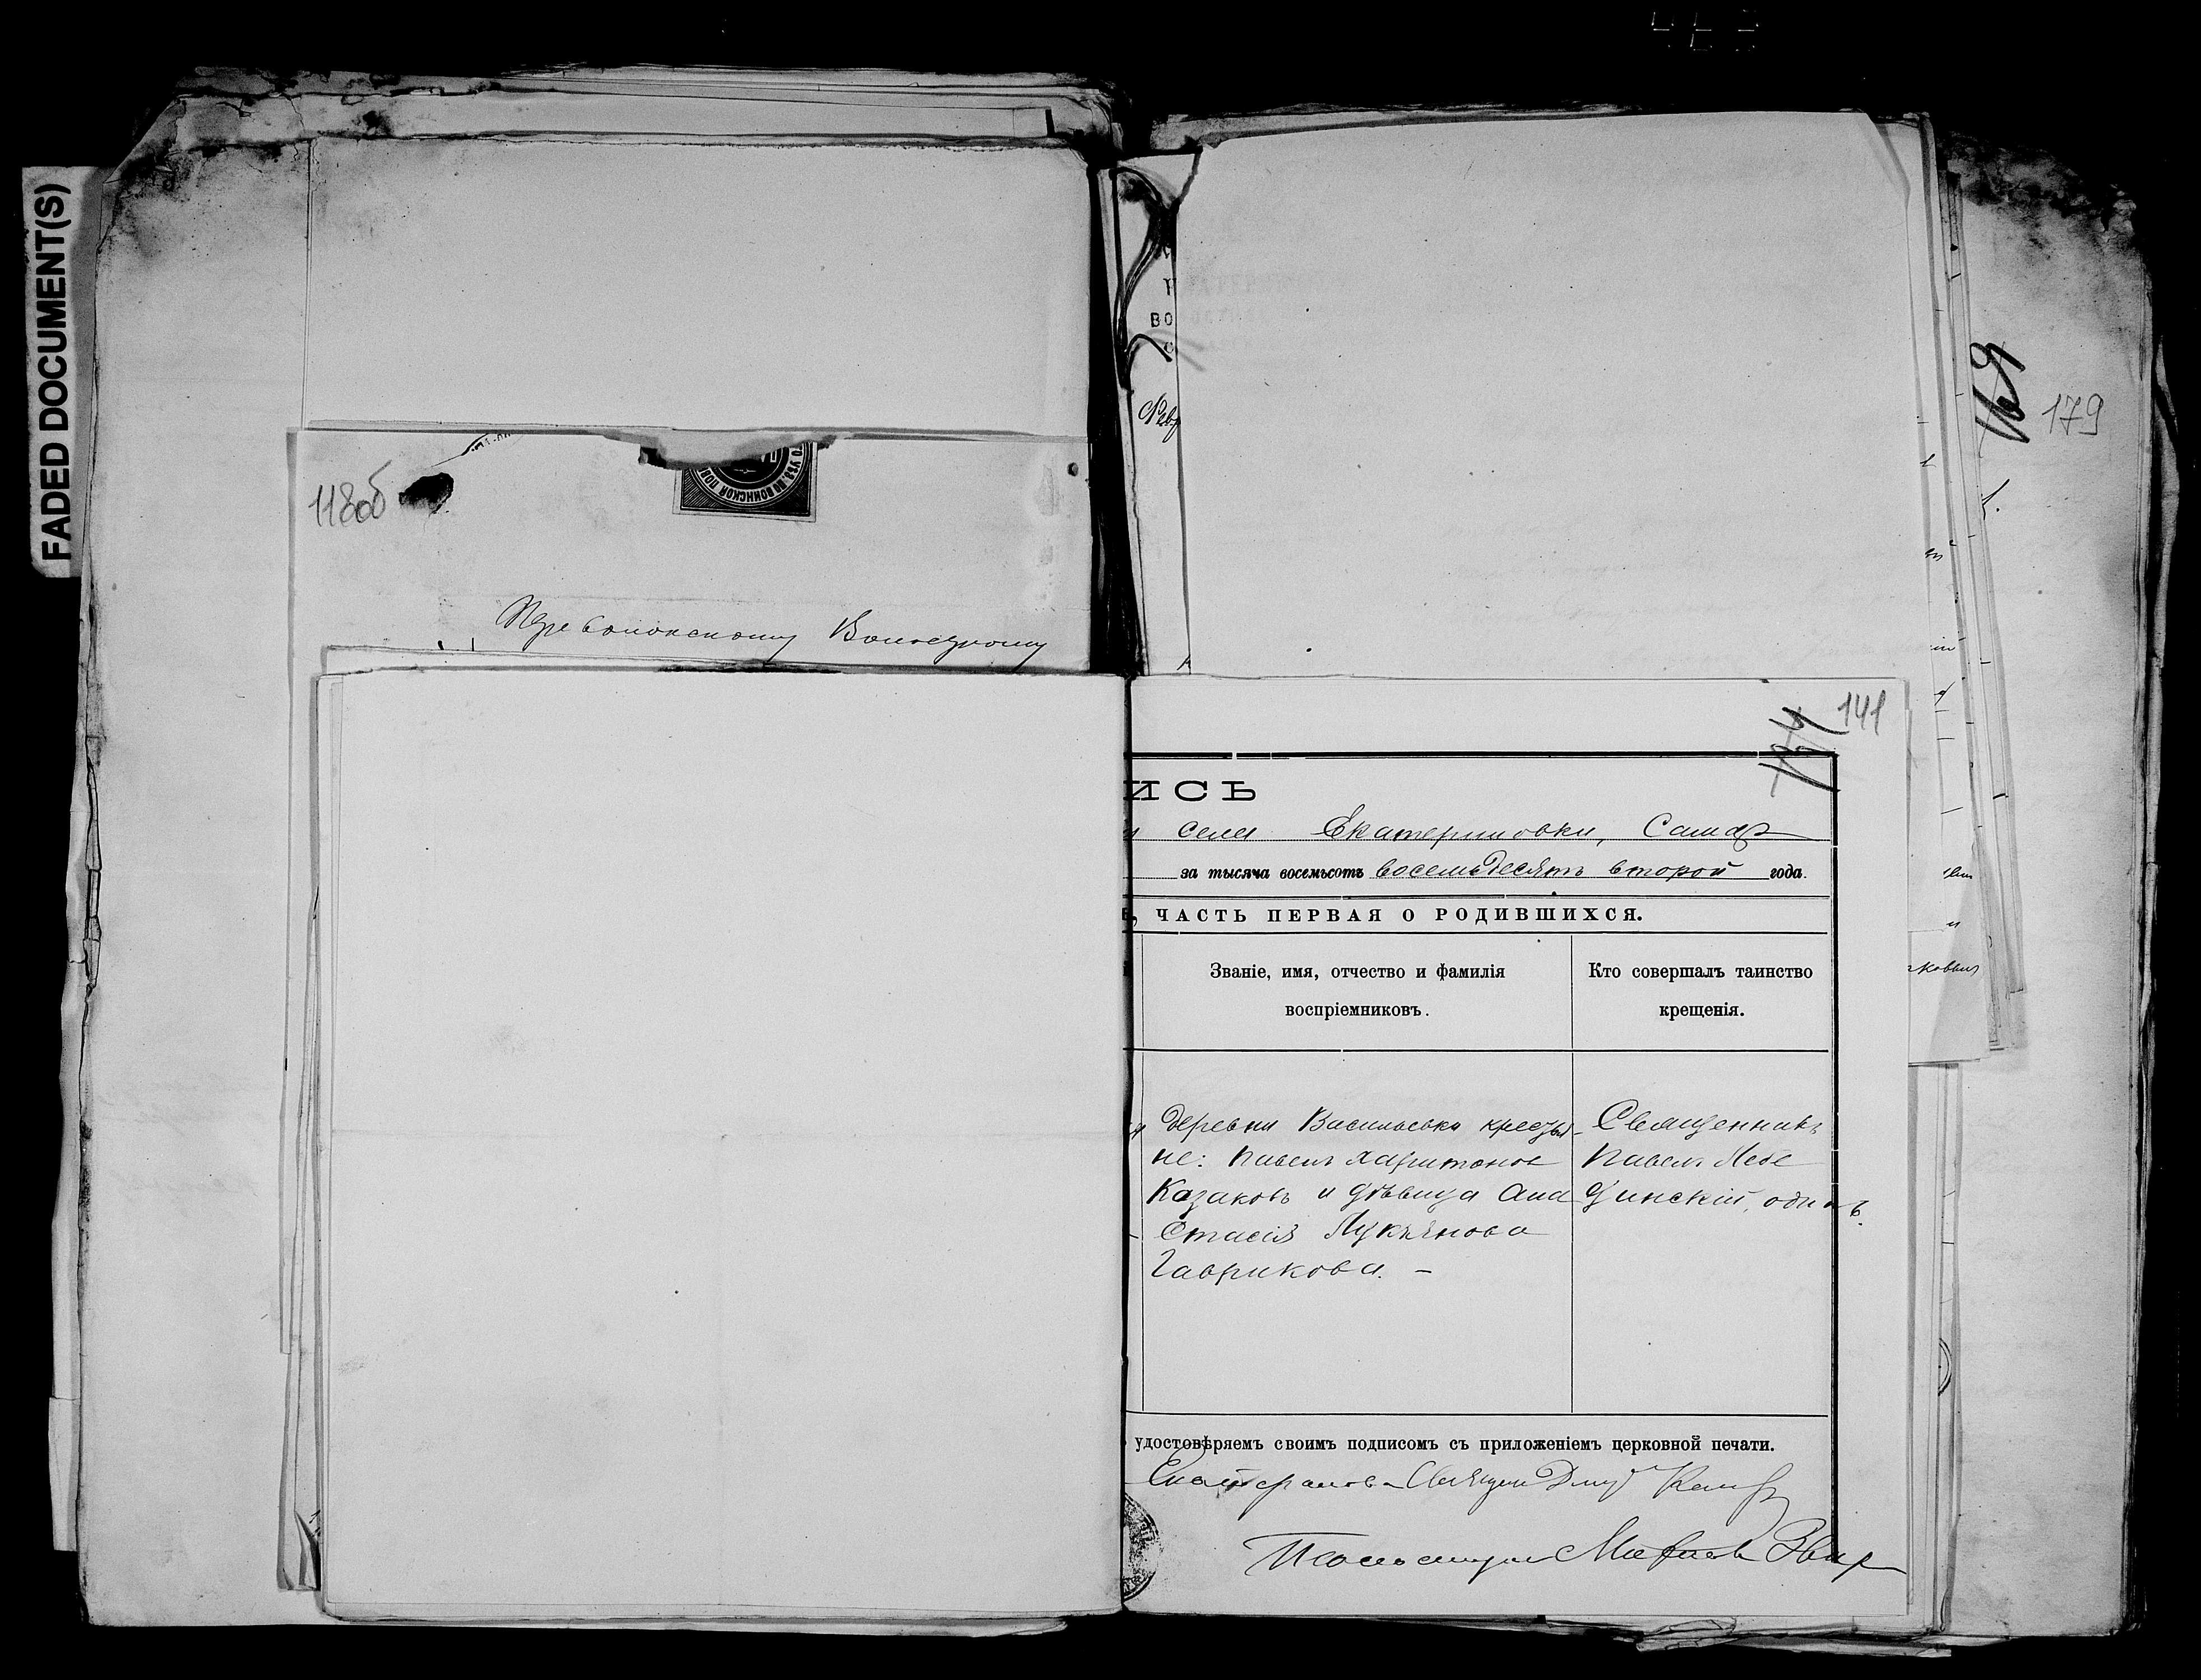 FADED DOCUMENT(S)
118об
ГО УѢЗ. ПО ВОИНСКОЙ ПОВ
Волостному
ВО
179
141
ИСЬ
села Екатериновки, Самар
за тысяча восемьсотъ восемьдесятъ второй года.
ЧАСТЬ ПЕРВАЯ О РОДИВШИХСЯ.
Званіе, имя, отчество и фамилія
воспріемниковъ.
Кто совершалъ таинство
крещенія.
деревни Васильевки крестья-
не: Павелъ Харитоновъ
Казаковъ и дѣвица Ана
стасія Лукьянова
Гаврикова. –
Священникъ
Павелъ Лебе
динскій, одинъ.
удостовѣряемъ своимъ подписомъ съ приложеніемъ церковной печати.
Псаломщикъ